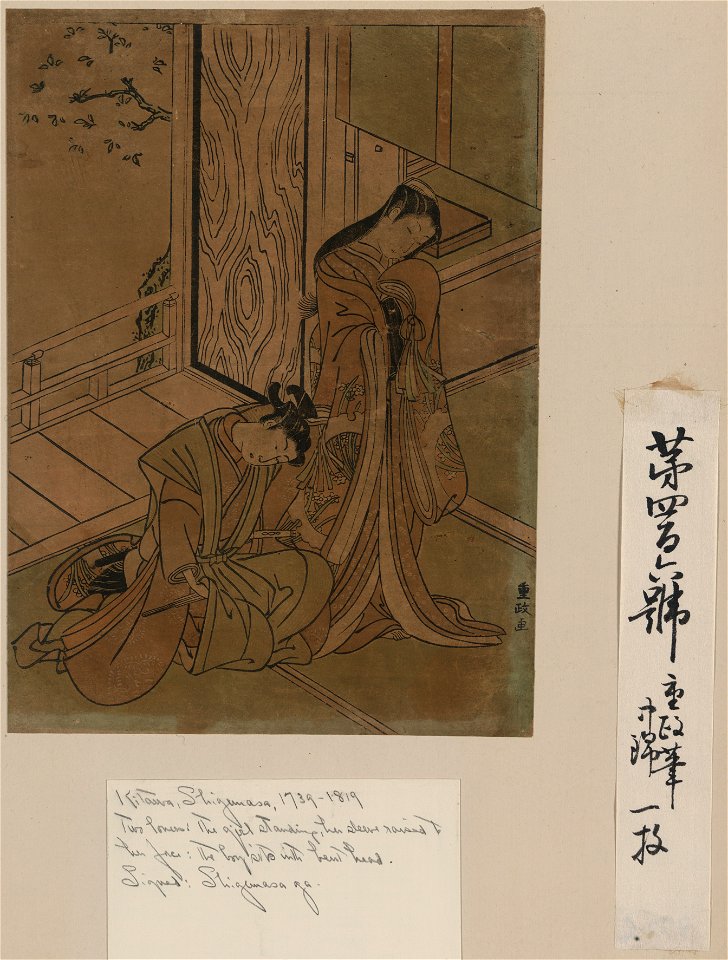 重政画
第四百六號
重政筆
中錦
一枚
Kitawo, Shigemasa, 1739-1819
Two lovers: The girl standing, her sleeve raised to
her face: the boy sits with bent head.
Signed: Shigemasa ga.